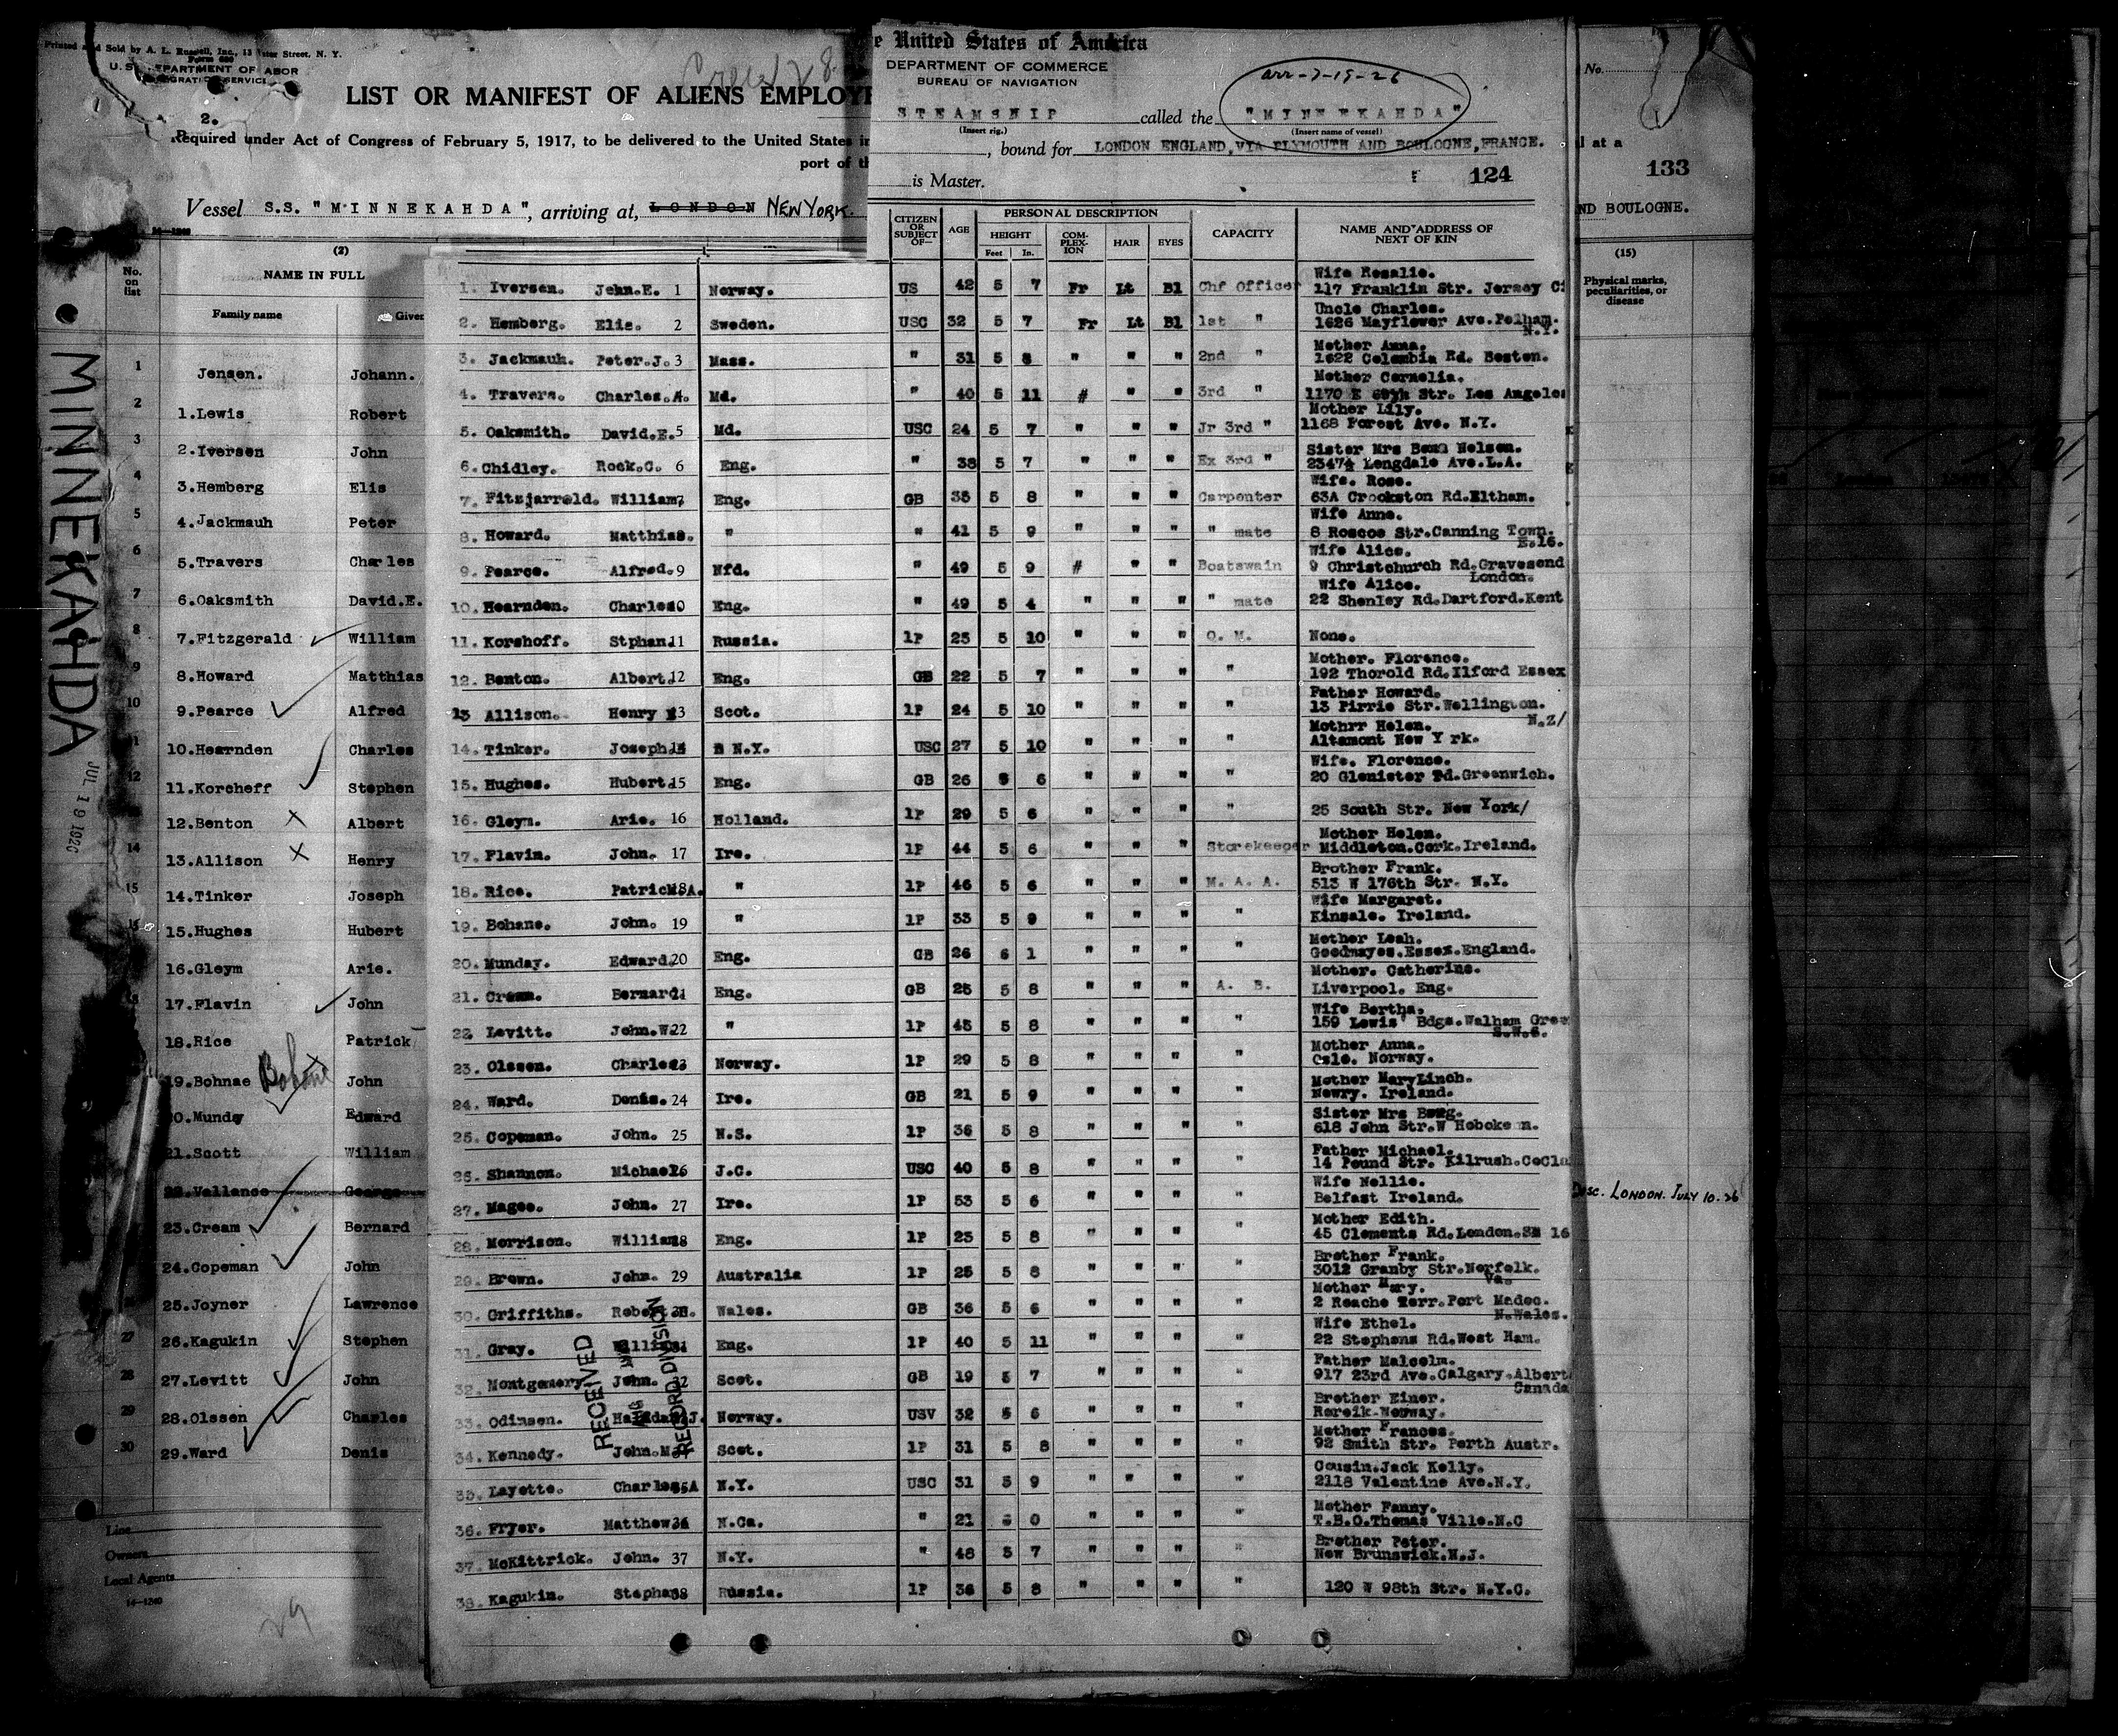 Printed and Sold by A. L. Russell, Inc., 13 Water Street, N. Y.
Form 680
2.
LIST OR MANIFEST OF ALIENS EMPLOYE
Required under Act of Congress of February 5, 1917, to be delivered to the United States i
port of th
Vessel S.S. "MINNEKAHDA", arriving at, LONDON NEW YORK.
14-1240
(2)
No. on list
NAME IN FULL
Family name
Given
1 Jensen. Johann.
2 1.Lewis Robert
3 2.Iversen John
4 3.Hemberg Elis
5 4.Jackmauh Peter
6 5.Travers Charles
7 6.Oaksmith David.E.
8 7.Fitzgerald William
9 8.Howard Matthias
10 9.Pearce Alfred
11 10.Hearnden Charles
12 11.Korcheff Stephen
12.Benton Albert
14 13.Allison Henry
15 14.Tinker Joseph
16 15.Hughes Hubert
16.Gleym Arie.
18 17.Flavin John
18.Rice Patrick
19.Bohnae Bohane John
20.Munday Edward
21.Scott William
22.Vallance George
23.Cream Bernard
24.Copeman John
25.Joyner Lawrence
27 26.Kagukin Stephen
28 27.Levitt John
29 28.Olssen Charles
30 29.Ward Denis
Line
Owners
Local Agents
14-1240
29
MINNEKAHDA
JUL 19 192
e United States of America
DEPARTMENT OF COMMERCE
BUREAU OF NAVIGATION
arr-7-19-26
STEAMSHIP called the "MINNEKAHDA"
(Insert rig.) (Insert name of vessel)
, bound for LONDON ENGLAND,VIA PLYMOUTH AND BOULOGNE,FRANCE.
is Master. 124
CITIZEN OR SUBJECT OF—
AGE
PERSONAL DESCRIPTION
HEIGHT
Feet In.
COM-PLEX-ION
HAIR
EYES
CAPACITY
NAME AND ADDRESS OF NEXT OF KIN
1. Iversen. John.E. 1 Norway. US 42 5 7 Fr Lt Bl Chf Officer Wife Rosalie.
117 Franklin Str. Jersey Ci
2. Hemberg. Elis. 2 Sweden. USC 32 5 7 Fr Lt Bl 1st " Uncle Charles.
1626 Mayflower Ave.Pelham.
N.Y.
3. Jackmauh. Peter.J. 3 Mass. " 31 5 8 " " " 2nd " Mother Anna.
1622 Columbia Rd. Boston.
4. Travers. Charles.A. Md. " 40 5 11 # " " 3rd " Mother Cornelia.
1170 E Str. Los Angeles
5. Oaksmith. David.E. 5 Md. USC 24 5 7 " " " Jr 3rd " Mother Lily.
1168 Forest Ave. N.Y.
6. Chidley. Rock.C. 6 Eng. " 38 5 7 " " " Ex 3rd " Sister Mrs Nelson.
2347½ Longdale Ave.L.A.
7. Fitzjarreld. William. 7 Eng. GB 35 5 8 " " " Carpenter Wife. Rose.
63A Crookston Rd.Eltham.
8. Howard. Matthias. " " 41 5 9 " " " " mate Wife Anne.
8 Roscoe Str.Canning Town.
E.16.
9. Pearce. Alfred. 9 Nfd. " 49 5 9 # " " Boatswain Wife Alice.
9 Christchurch Rd.Gravesend
London.
10. Hearnden. Charles Eng. " 49 5 4 " " " " mate Wife Alice.
22 Shenley Rd.Dartford.Kent
11. Korshoff. Stphan. 11 Russia. 1P 25 5 10 " " " Q. M. None.
12. Benton. Albert. 12 Eng. GB 22 5 7 " " " " Mother. Florence.
192 Thorold Rd.Ilford Essex
13 Allison. Henry 13 Scot. 1P 24 5 10 " " " " Father Howard.
13 Pirrie Str.Wellington.
N.Z/
14. Tinker. Joseph 14 N.Y. USC 27 5 10 " " " " Mothrr Helen.
Altamont New Y rk.
15. Hughes. Hubert. 15 Eng. GB 26 5 6 " " " " Wife. Florence.
20 Glenister Rd.Greenwich.
16. Gleym. Arie. 16 Holland. 1P 29 5 6 " " " " 25 South Str. New York/
17. Flavin. John. 17 Ire. 1P 44 5 6 " " " Storekeeper Mother Helen.
Middleton.Cork.Ireland.
18. Rice. Patrick 18 A. " 1P 46 5 6 " " " M. A. A. Brother Frank.
513 W 176th Str. N.Y.
19. Bohane. John. 19 " 1P 33 5 9 " " " " Wife Margaret.
Kinsale. Ireland.
20. Munday. Edward. 20 Eng. GB 26 6 1 " " " " Mother Leah.
Goodmayes.Essex.England.
21. Cream. Bernard. 21 Eng. GB 25 5 8 " " " A. B. Mother. Catherine.
Liverpool. Eng.
22. Levitt. John.W. 22 " 1P 45 5 8 " " " " Wife Bertha.
159 Lewis' Bdgs.Walham Gree
S.W.6.
23. Olssen. Charles 23 Norway. 1P 29 5 8 " " " " Mother Anna.
Oslo. Norway.
24. Ward. Denis. 24 Ire. GB 21 5 9 " " " " Mother MaryLinch.
Newry. Ireland.
25. Copeman. John. 25 N.S. 1P 36 5 8 " " " " Sister Mrs Berg.
618 John Str.W Hoboken.
26. Shannon. Michael 26 J.C. USC 40 5 8 " " " " Father Michael.
14 Pound Str. Kilrush.CoCla
27. Magee. John. 27 Ire. 1P 53 5 6 " " " " Wife Nellie.
Belfast Ireland.
28. Morrison. William 28 Eng. 1P 23 5 8 " " " " Mother Edith.
45 Clements Rd.London.SE 16
29. Brown. John. 29 Australia 1P 25 5 8 " " " " Brother Frank.
3012 Granby Str.Norfolk.
Va.
30. Griffiths. Robert Wales. GB 36 5 6 " " " " Mother Mary.
2 Reache Terr.Port Madoc.
N.Wales.
31. Gray. William 31 Eng. 1P 40 5 11 " " " " Wife Ethel.
22 Stephens Rd.West Ham.
32. Montgomery. John. 32 Scot. GB 19 5 7 " " " " Father Malcolm.
917 23rd Ave.Calgary.Albert
Canada
33. Odinsen. J. Norway. USV 32 5 6 " " " " Brother Einer.
Norway.
34. Kennedy. John.M. Scot. 1P 31 5 8 " " " " Mother Frances.
92 Smith Str. Perth Austr.
35. Layette. Charles A N.Y. USC 31 5 9 " " " " Cousin.Jack Kelly.
2118 Valentine Ave.N.Y.
36. Fryer. Matthew 36 N.Ca. " 21 6 0 " " " " Mother Fanny.
T.B.O.Thomas Ville.N.C
37. McKittrick. John. 37 N.Y. " 48 5 7 " " " " Brother Peter.
New Brunswick.N.J.
38. Kagukin. Stephan 38 Russia. 1P 36 5 8 " " " " 120 W 98th Str. N.Y.C.
RECEIVED
RECORD DIVISION
No.
l at a
133
ND BOULOGNE.
(15)
Physical marks, peculiarities, or disease
Desc. LONDON. JULY 10-26